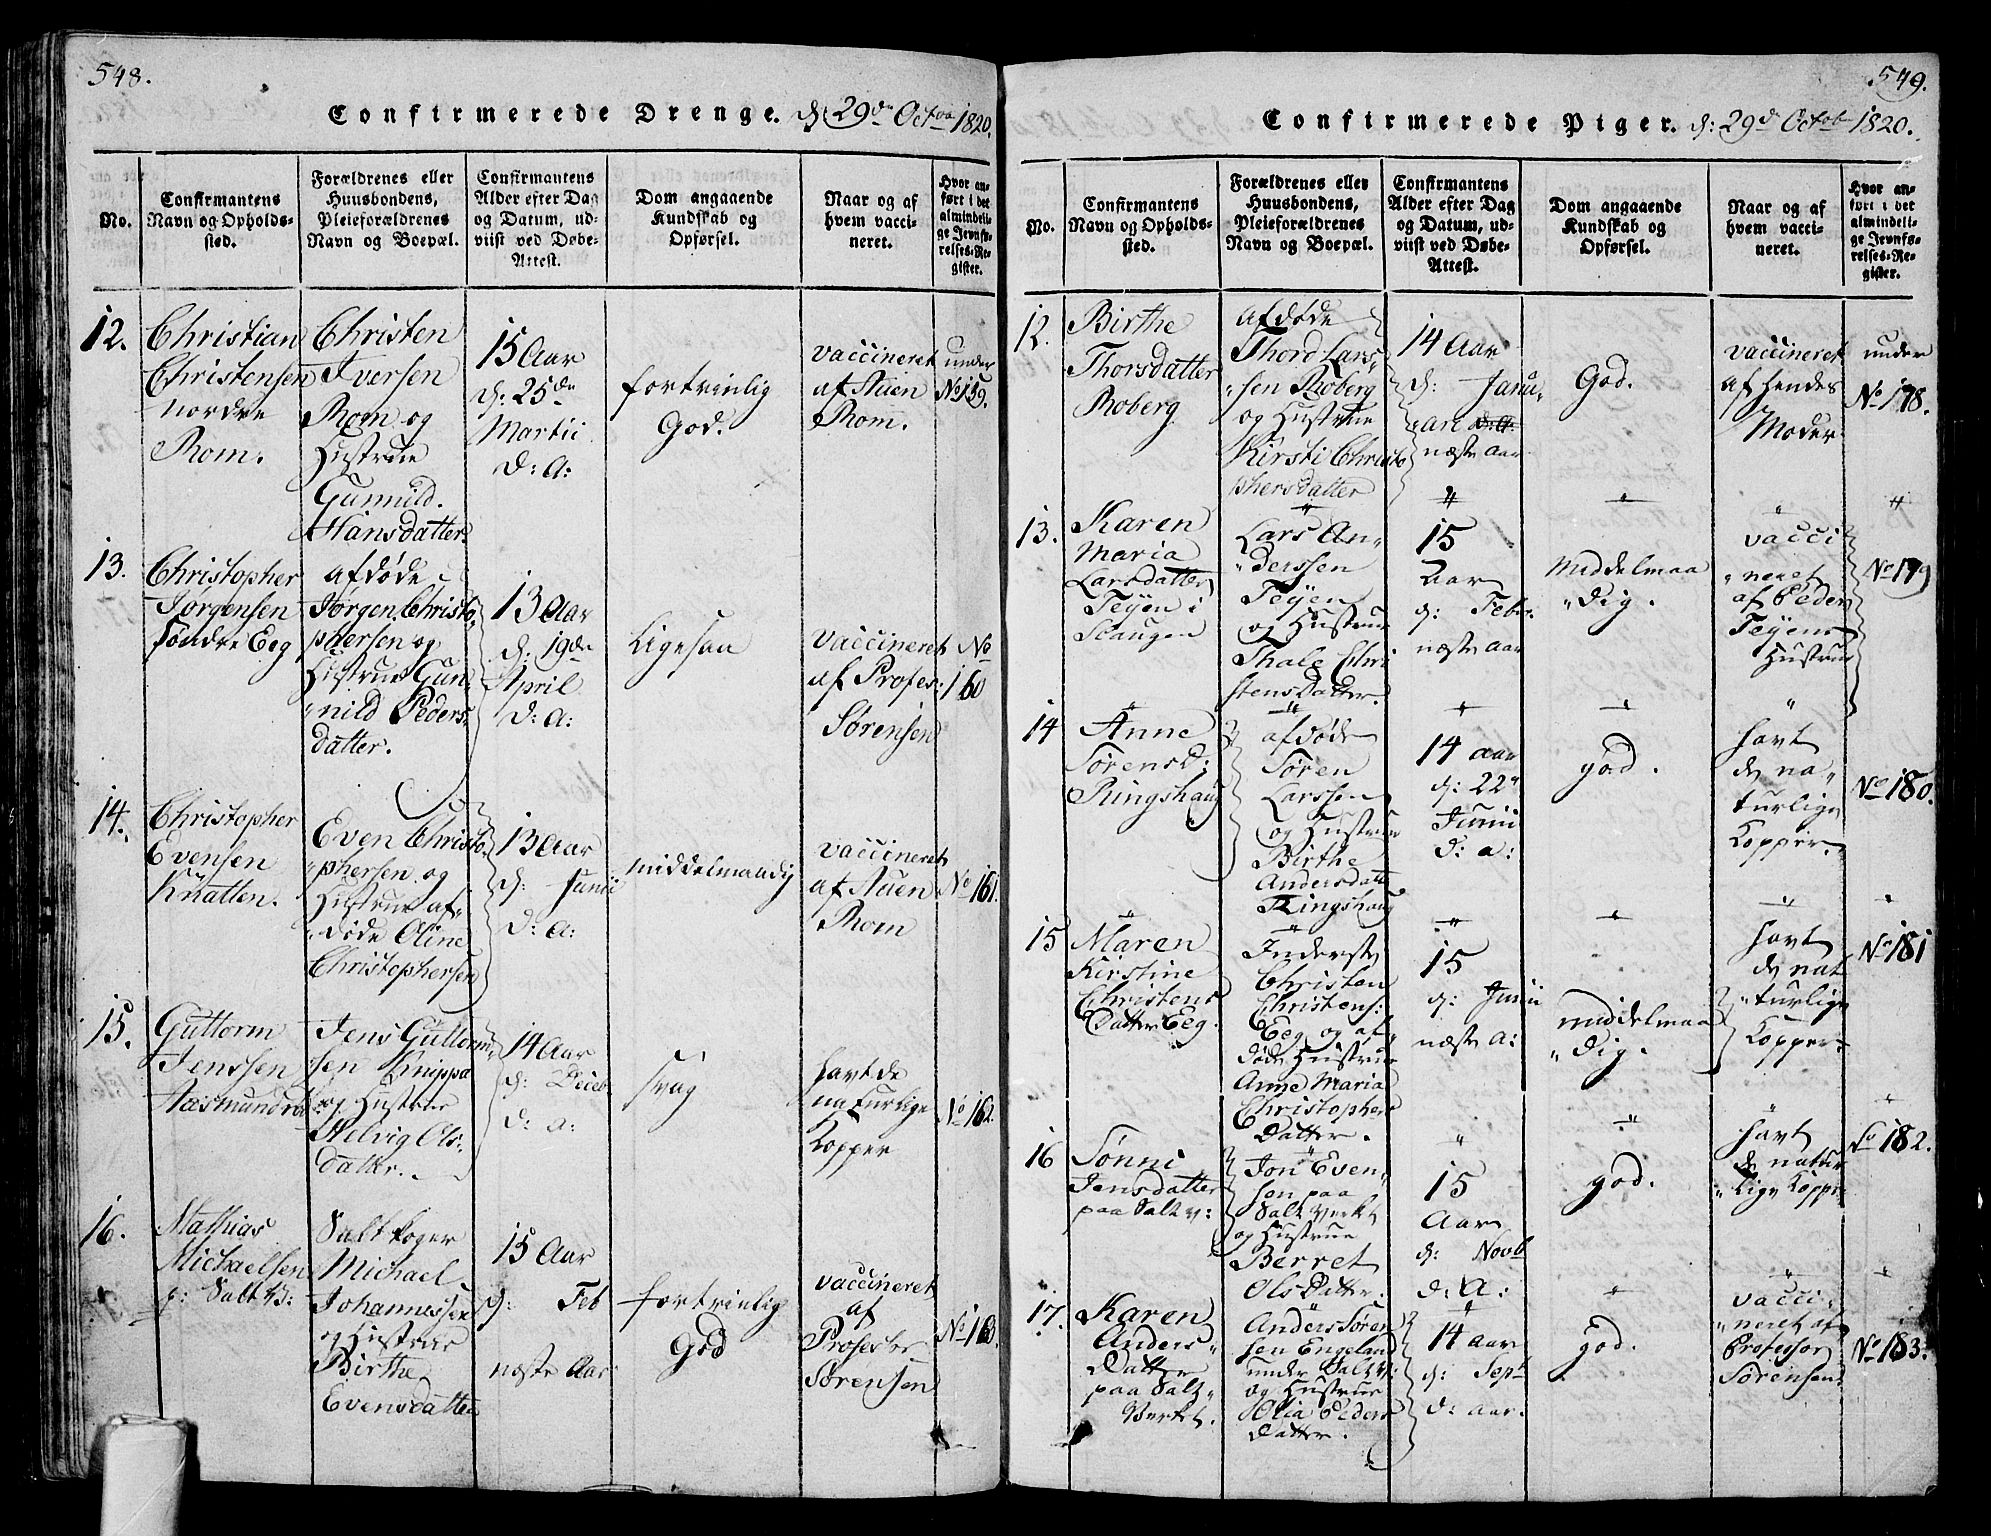 548.
Confirmerede Drenge. d: 29de Octbr 1820.
No.
Confirmantens
Navn og Opholds-
sted.
Forældrenes eller
Huusbondens,
Pleieforældrenes
Navn og Boepæl.
Confirmantens
Alder efter Dag
og Datum, ud-
viist ved Døbe-
Attest.
Dom angaaende
Kundskab og
Opførsel.
Naar og af
hvem vacci-
neret.
Hvor an-
ført i det
almindeli-
ge Jevnfø-
relses-Re-
gister.
12.
Christian
Christensen
nordre
Rom.
Christen
Iversen
Rom og
Hustrue
Gunnild
Hansdatter
15 Aar
d: 25de
Martii
d: A:
fortrinlig
God.
vaccineret
af Auen
Rom.
under
No 159.
13.
Christopher
Jørgensen
søndre Eeg
afdøde
Jørgen Christo
phersen og
Hustrue Gun
nild Peders
datter.
13 Aar
d: 19de
April
d: A:
Ligesaa
vaccineret
af Profes:
Sørensen
No
160
14.
Christopher
Evensen
Knatten.
Even Christo
phersen og
Hustrue af
døde Oline
Christophersen
13 Aar
d: Junii
d: A:
middelmaadig
vaccineret
af Auen
Rom
No 161.
15.
Guttorm
Jenssen
Aasmundrød
Jens Guttorm
sen Knippa
og Hustrue
Helvig Ols:
datter.
14 Aar
d: Deceb
d: a:
svag
havt de
naturlige
Kopper
No 162.
16.
Mathias
Michaelsen
p: Salt V:
Saltkoger
Michael
Johannessen
og Hustrue
Birthe
Evensdatter
15 Aar
d: Feb
næste Aar
fortrinlig
God
vaccineret
af
Professor
Sørensen
No 163.
549.
Confirmerede Piger. d: 29de Octob 1820.
No.
Confirmantens
Navn og Opholds-
sted.
Forældrenes eller
Huusbondens,
Pleieforældrenes
Navn og Boepæl.
Confirmantens
Alder efter Dag
og Datum, ud-
viist ved Døbe-
Attest.
Dom angaaende
Kundskab og
Opførsel.
Naar og af
hvem vacci-
neret.
Hvor an-
ført i det
almindeli-
ge Jevnfø-
relses-Re-
gister.
12.
Birthe
Thorsdatter
Roberg
afdøde
Thord Lars
sen Roberg
og Hustrue
Kirsti Christo
phersdatter
14 Aar
d: Janu
ari
næste aar
God.
vaccineret
af hendes
Moder
under
No 178.
13.
Karen
Maria
Larsdatter
Teyen i
Scaugen
Lars An
derssen
Teyen
og Hustrue
Thale Chri
stensdatter.
15
Aar
d: Febr.
næste aar
Middelmaa
dig.
vacci
neret
af Peder
Teyens
Hustrue
No 179
14
Anne
Sørensd:
Ringshaug
afdøde
Søren
Larssen
og Hustrue
Birthe
Andersdatt
Ringshaug
14 aar
d: 22
Junii
d: a:
god.
havt
de na
turlige
Kopper.
No 180.
15
Maren
Kirstine
Christens
Datter Eeg.
Inderste
Christen
Christens:
Eeg og af
døde Hustrue
Anne Maria
Christophers
Datter.
15
d: Junii
næste A:
middelmaa
dig.
havt
de nat
turlige
Kopper
No 181
16
Sønni
Jensdatter
paa Saltv:
Jon Even
sen paa
Saltverket
og Hustrue
Berret
Olsdatter.
15
Aar
d: Novb
d: A:
god.
havt
de natur
lige Kopper
No 182.
17.
Karen
Anders
Datter
paa Salt
Verket.
Anders Søren
sen Engeland
under Saltv:
og Hustrue
Olia Peders
Datter.
14 aar
d: Sept
d: aar.
god.
vacci
neret af
Professor
Sørensen
No 183.